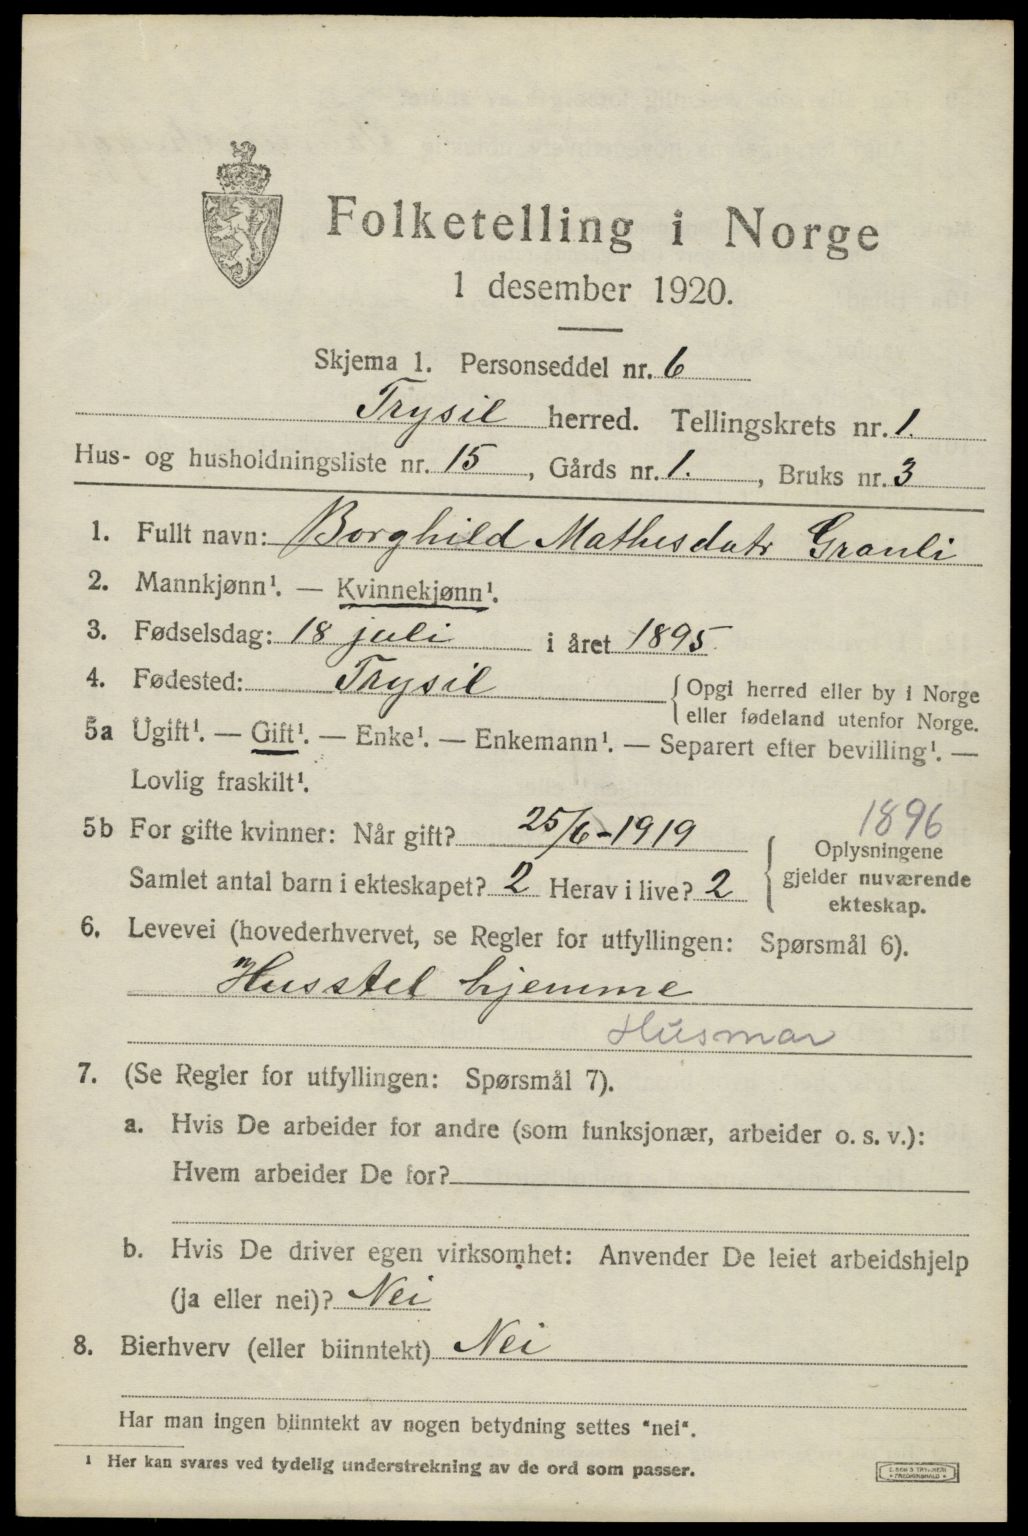 Folketelling i Norge
1 desember 1920.
Skjema 1. Personseddel nr. 6
Trysil herred. Tellingskrets nr. 1.
Hus- og husholdningsliste nr. 15, Gårds nr. 1., Bruks nr. 3
1. Fullt navn: Borghild Mathisdatr Granli
2. Mannkjønn¹. — Kvinnekjønn¹.
3. Fødselsdag: 18 juli i året 1895.
4. Fødested: Trysil { Opgi herred eller by i Norge
eller fødeland utenfor Norge.
5a Ugift¹. — Gift¹. — Enke¹. — Enkemann¹. — Separert efter bevilling¹. —
Lovlig fraskilt¹.
1896
5b For gifte kvinner: Når gift? 25/6-1919
Samlet antal barn i ekteskapet? 2 Herav i live? 2
{ Oplysningene
gjelder nuværende
ekteskap.
6. Levevei (hovederhvervet, se Regler for utfyllingen: Spørsmål 6).
Husstel hjemme
Husmor
7. (Se Regler for utfyllingen: Spørsmål 7).
a. Hvis De arbeider for andre (som funksjonær, arbeider o. s. v.):
Hvem arbeider De for?
b. Hvis De driver egen virksomhet: Anvender De leiet arbeidshjelp
(ja eller nei)? Nei
8. Bierhverv (eller biinntekt) Nei
Har man ingen biinntekt av nogen betydning settes "nei".
¹ Her kan svares ved tydelig understrekning av de ord som passer.